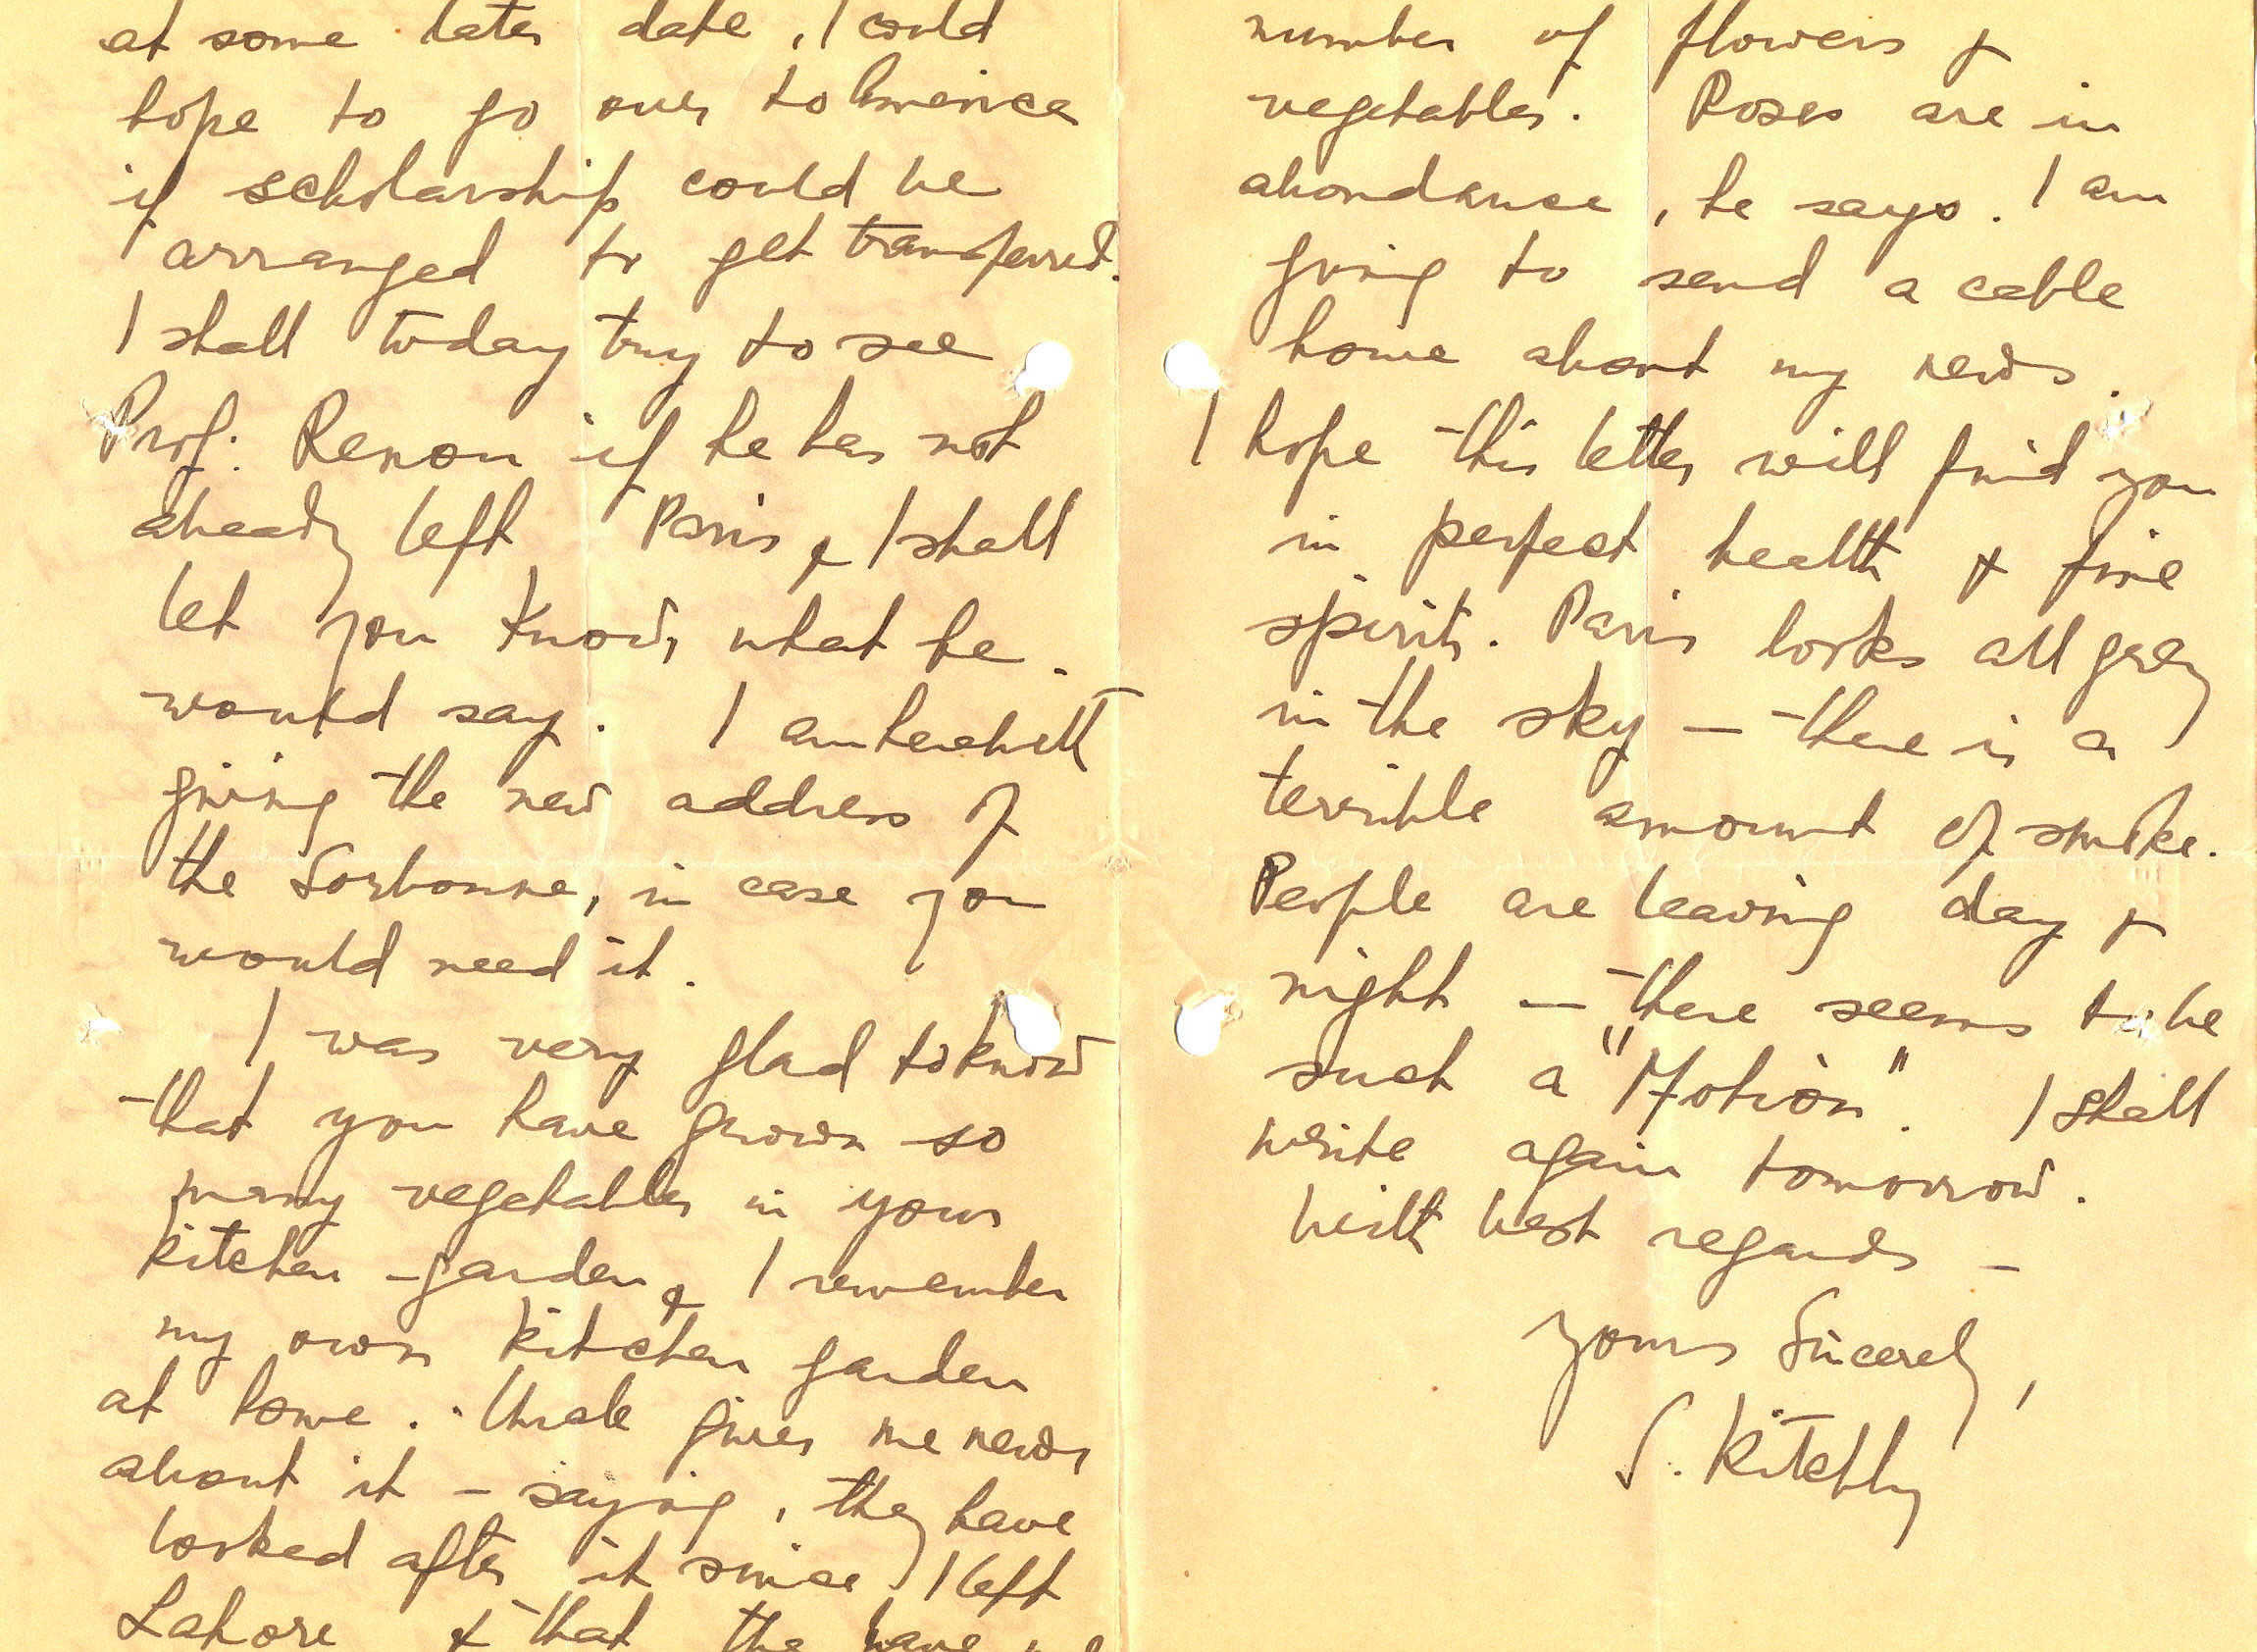 at some later date, I could
hope to go over to America
if scholarship could be
arranged to get transferred.
I shall today try to see
Prof. Renou if he has not
already left Paris & I shall
let you know, what he
would say. I am herewith
giving the new address of
the Sorbonne, in case you
would need it.
I was very glad to know
that you have grown so
many vegetables in your
kitchen-garden & I remember
my own kitchen garden
at home. Uncle gives me news
about it - saying, they have
looked after it since I left
Lahore & that the have
number of flowers &
vegetables. Roses are in
abondance, he says. I am
going to send a cable
home about my news.
I hope this letter will find you
in perfect health & fine
spirits. Paris looks all grey
in the sky — there is a
terrible amount of smoke.
People are leaving day &
night — there seems to be
such a "Motion". I shall
write again tomorrow.
With best regards -
Yours Sincerely,
S. Kitchly